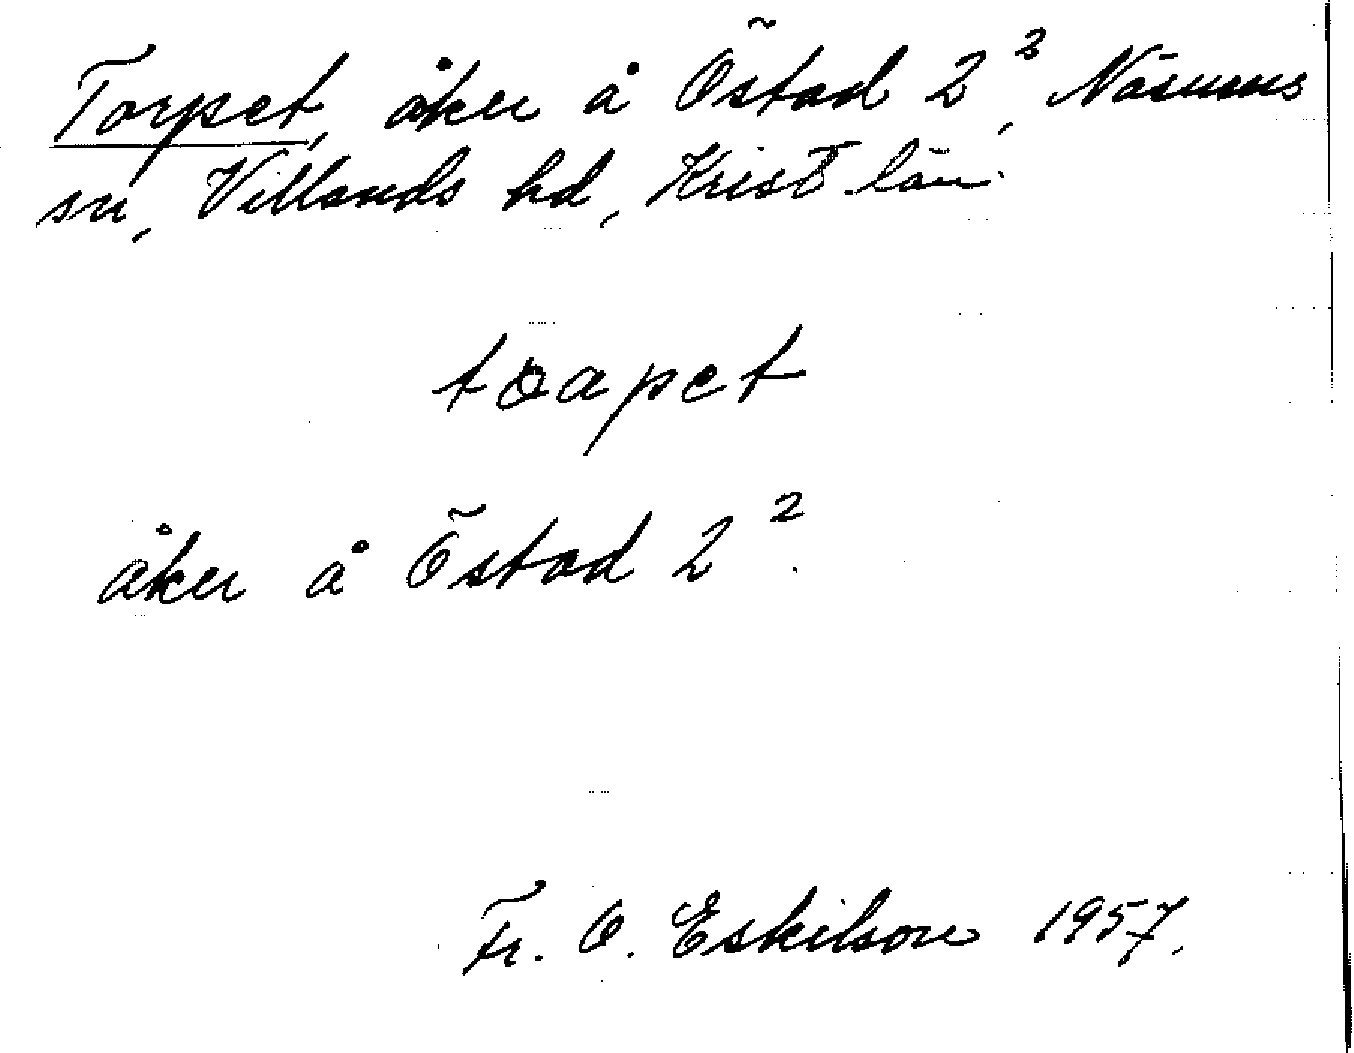 Torpet, åker å Östad 2², Näsums
sn, Villands hd, Krist län.
toapet
åker å Östad 2².
Fr. O. Eskilson 1957.